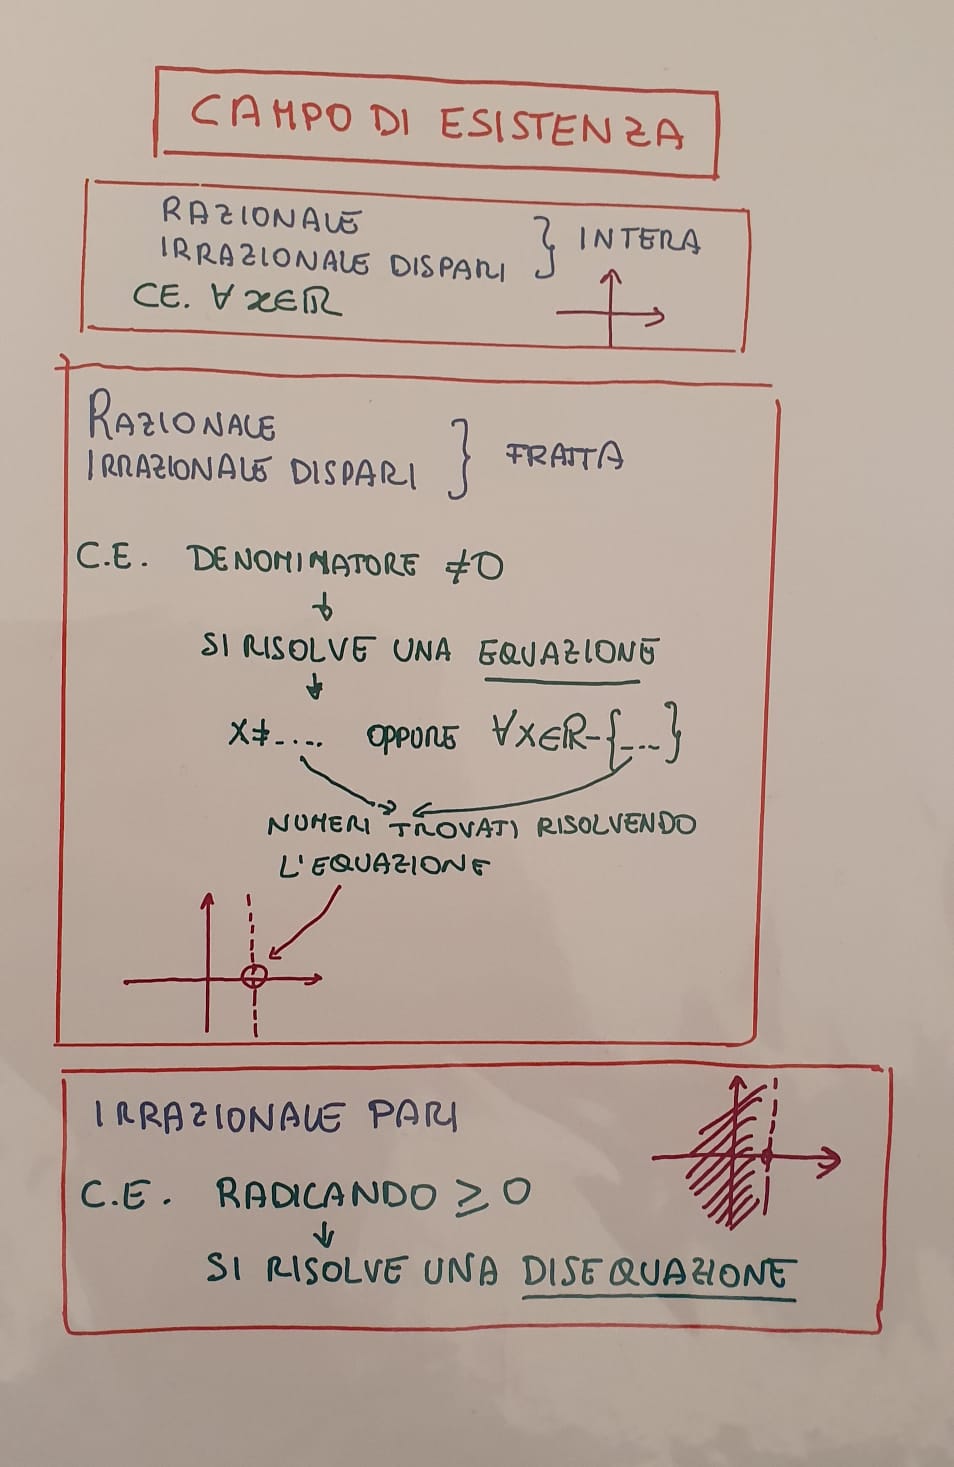 CAMPO DI ESISTENZA
RAZIONALE
IRRAZIONALE DISPARI } INTERA
CE. ∀ x∈ℝ
RAZIONALE
IRRAZIONALE DISPARI } FRATTA
C.E. DENOMINATORE ≠0
↓
SI RISOLVE UNA EQUAZIONE
↓
X≠-... OPPURE ∀x∈ℝ-{---}
NUMERI TROVATI RISOLVENDO
L'EQUAZIONE
IRRAZIONALE PARI
C.E. RADICANDO ≥ 0
↓
SI RISOLVE UNA DISEQUAZIONE